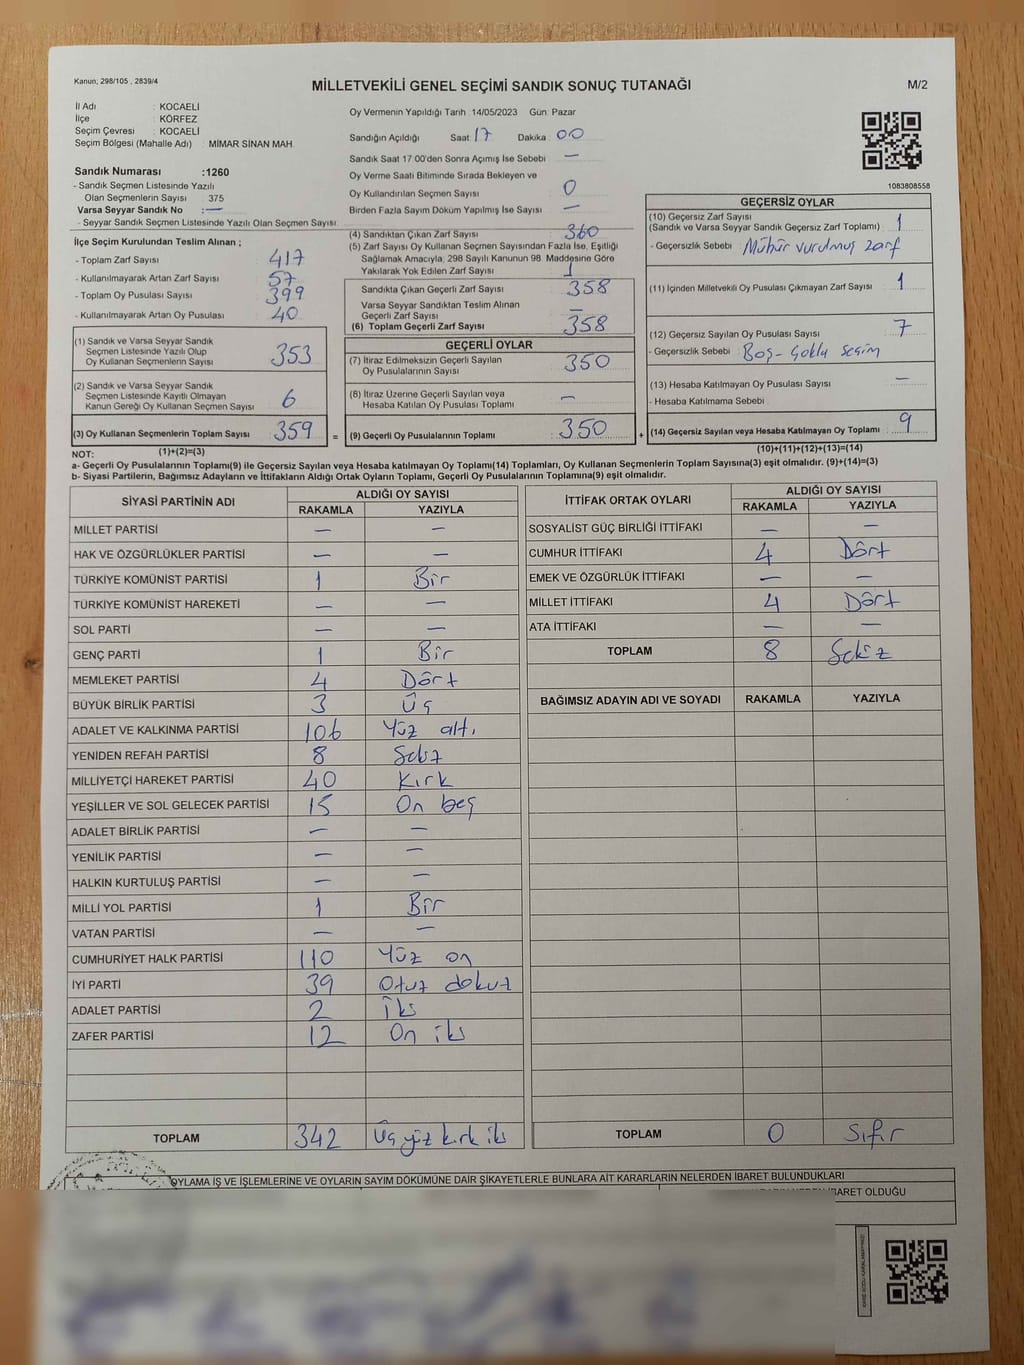 Kanun; 298/105 , 2839/4
MİLLETVEKİLİ GENEL SEÇİMİ SANDIK SONUÇ TUTANAĞI
M/2
İl Adı : KOCAELİ
İlçe : KÖRFEZ
Seçim Çevresi : KOCAELİ
Seçim Bölgesi (Mahalle Adı) : MİMAR SİNAN MAH.
Sandık Numarası :1260
- Sandık Seçmen Listesinde Yazılı
Olan Seçmenlerin Sayısı 375
Varsa Seyyar Sandık No : —
- Seyyar Sandık Seçmen Listesinde Yazılı Olan Seçmen Sayısı:
Oy Vermenin Yapıldığı Tarih 14/05/2023 Gün: Pazar
Sandığın Açıldığı Saat 17 Dakika 00
Sandık Saat 17:00'den Sonra Açımış İse Sebebi —
Oy Verme Saati Bitiminde Sırada Bekleyen ve
Oy Kullandırılan Seçmen Sayısı 0
Birden Fazla Sayım Döküm Yapılmış İse Sayısı —
1083808558
İlçe Seçim Kurulundan Teslim Alınan ;
- Toplam Zarf Sayısı 417
- Kullanılmayarak Artan Zarf Sayısı 57
- Toplam Oy Pusulası Sayısı 399
- Kullanılmayarak Artan Oy Pusulası 40
(1) Sandık ve Varsa Seyyar Sandık
Seçmen Listesinde Yazılı Olup
Oy Kullanan Seçmenlerin Sayısı 353
(2) Sandık ve Varsa Seyyar Sandık
Seçmen Listesinde Kayıtlı Olmayan
Kanun Gereği Oy Kullanan Seçmen Sayısı 6
(3) Oy Kullanan Seçmenlerin Toplam Sayısı 359 =
(4) Sandıktan Çıkan Zarf Sayısı 360
(5) Zarf Sayısı Oy Kullanan Seçmen Sayısından Fazla İse, Eşitliği
Sağlamak Amacıyla; 298 Sayılı Kanunun 98. Maddesine Göre
Yakılarak Yok Edilen Zarf Sayısı 1
Sandıkta Çıkan Geçerli Zarf Sayısı 358
Varsa Seyyar Sandıktan Teslim Alınan
Geçerli Zarf Sayısı —
(6) Toplam Geçerli Zarf Sayısı 358
GEÇERLİ OYLAR
(7) İtiraz Edilmeksizin Geçerli Sayılan
Oy Pusulalarının Sayısı 350
(8) İtiraz Üzerine Geçerli Sayılan veya
Hesaba Katılan Oy Pusulası Toplamı —
(9) Geçerli Oy Pusulalarının Toplamı 350 +
GEÇERSİZ OYLAR
(10) Geçersiz Zarf Sayısı
(Sandık ve Varsa Seyyar Sandık Geçersiz Zarf Toplamı) 1
- Geçersizlik Sebebi : Mühür vurulmuş zarf
(11) İçinden Milletvekili Oy Pusulası Çıkmayan Zarf Sayısı 1
(12) Geçersiz Sayılan Oy Pusulası Sayısı 7
- Geçersizlik Sebebi : Boş-Çoklu Seçim
(13) Hesaba Katılmayan Oy Pusulası Sayısı —
- Hesaba Katılmama Sebebi
(14) Geçersiz Sayılan veya Hesaba Katılmayan Oy Toplamı 9
NOT: (1)+(2)=(3) (10)+(11)+(12)+(13)=(14)
a- Geçerli Oy Pusulalarının Toplamı(9) ile Geçersiz Sayılan veya Hesaba katılmayan Oy Toplamı(14) Toplamları, Oy Kullanan Seçmenlerin Toplam Sayısına(3) eşit olmalıdır. (9)+(14)=(3)
b- Siyasi Partilerin, Bağımsız Adayların ve İttifakların Aldığı Ortak Oyların Toplamı, Geçerli Oy Pusulalarının Toplamına(9) eşit olmalıdır.
SİYASİ PARTİNİN ADI ALDIĞI OY SAYISI
RAKAMLA YAZIYLA
MİLLET PARTİSİ — —
HAK VE ÖZGÜRLÜKLER PARTİSİ — —
TÜRKİYE KOMÜNİST PARTİSİ 1 Bir
TÜRKİYE KOMÜNİST HAREKETİ — —
SOL PARTİ — —
GENÇ PARTİ 1 Bir
MEMLEKET PARTİSİ 4 Dört
BÜYÜK BİRLİK PARTİSİ 3 Üç
ADALET VE KALKINMA PARTİSİ 106 Yüz altı
YENİDEN REFAH PARTİSİ 8 Sekiz
MİLLİYETÇİ HAREKET PARTİSİ 40 Kırk
YEŞİLLER VE SOL GELECEK PARTİSİ 15 On beş
ADALET BİRLİK PARTİSİ — —
YENİLİK PARTİSİ — —
HALKIN KURTULUŞ PARTİSİ — —
MİLLİ YOL PARTİSİ 1 Bir
VATAN PARTİSİ — —
CUMHURİYET HALK PARTİSİ 110 Yüz on
İYİ PARTİ 39 Otuz dokuz
ADALET PARTİSİ 2 İki
ZAFER PARTİSİ 12 On iki
TOPLAM 342 Üç yüz kırk iki
İTTİFAK ORTAK OYLARI ALDIĞI OY SAYISI
RAKAMLA YAZIYLA
SOSYALİST GÜÇ BİRLİĞİ İTTİFAKI — —
CUMHUR İTTİFAKI 4 Dört
EMEK VE ÖZGÜRLÜK İTTİFAKI — —
MİLLET İTTİFAKI 4 Dört
ATA İTTİFAKI — —
TOPLAM 8 Sekiz
BAĞIMSIZ ADAYIN ADI VE SOYADI RAKAMLA YAZIYLA
TOPLAM 0 Sıfır
OYLAMA İŞ VE İŞLEMLERİNE VE OYLARIN SAYIM DÖKÜMÜNE DAİR ŞİKAYETLERLE BUNLARA AİT KARARLARIN NELERDEN İBARET BULUNDUKLARI
İBARET OLDUĞU